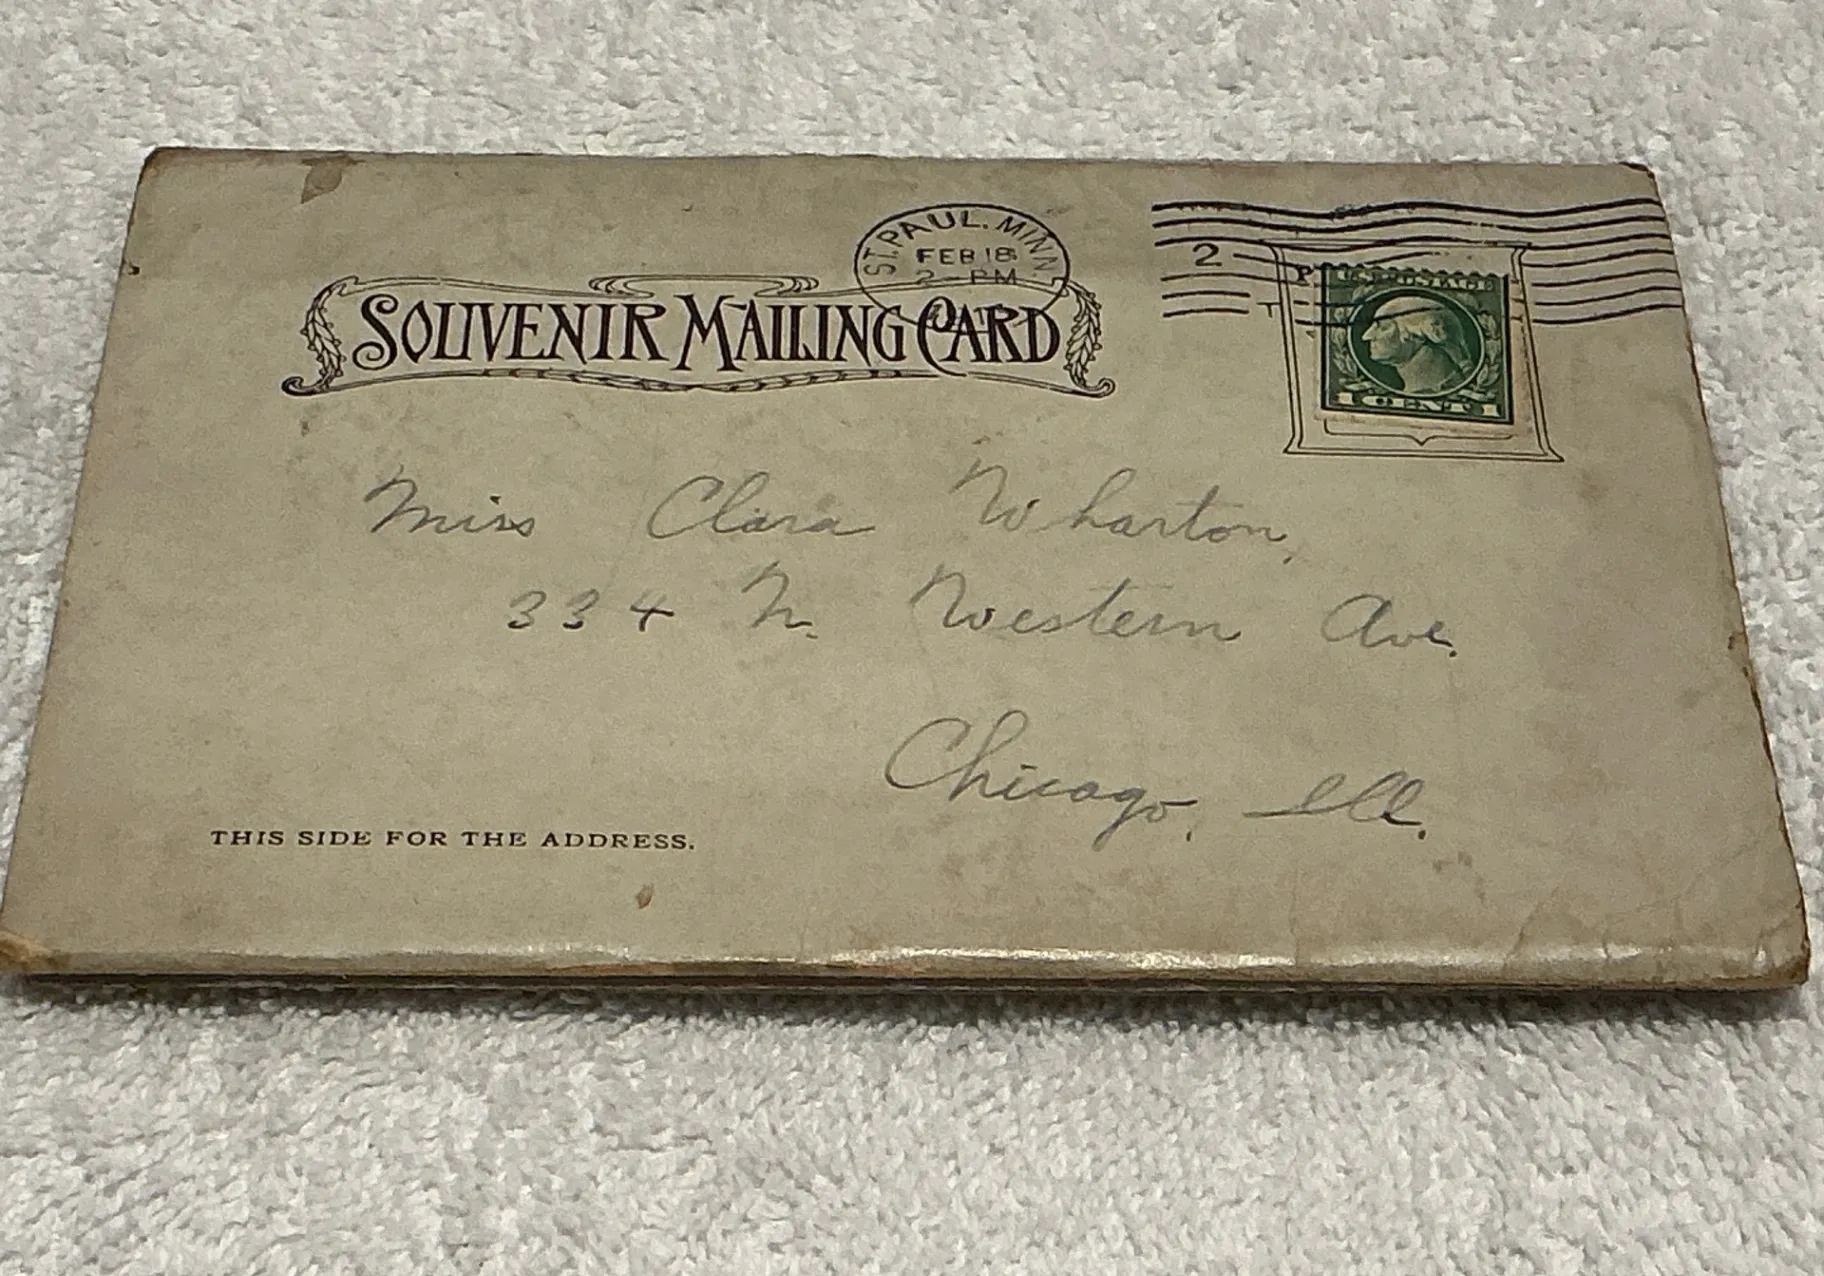 ST. PAUL. MINN.
FEB 18
2 PM
2
SOUVENIR MAILING CARD
1 CENT 1
Miss Clara Wharton,
334 N. Western Ave.
Chicago, Ill.
THIS SIDE FOR THE ADDRESS.